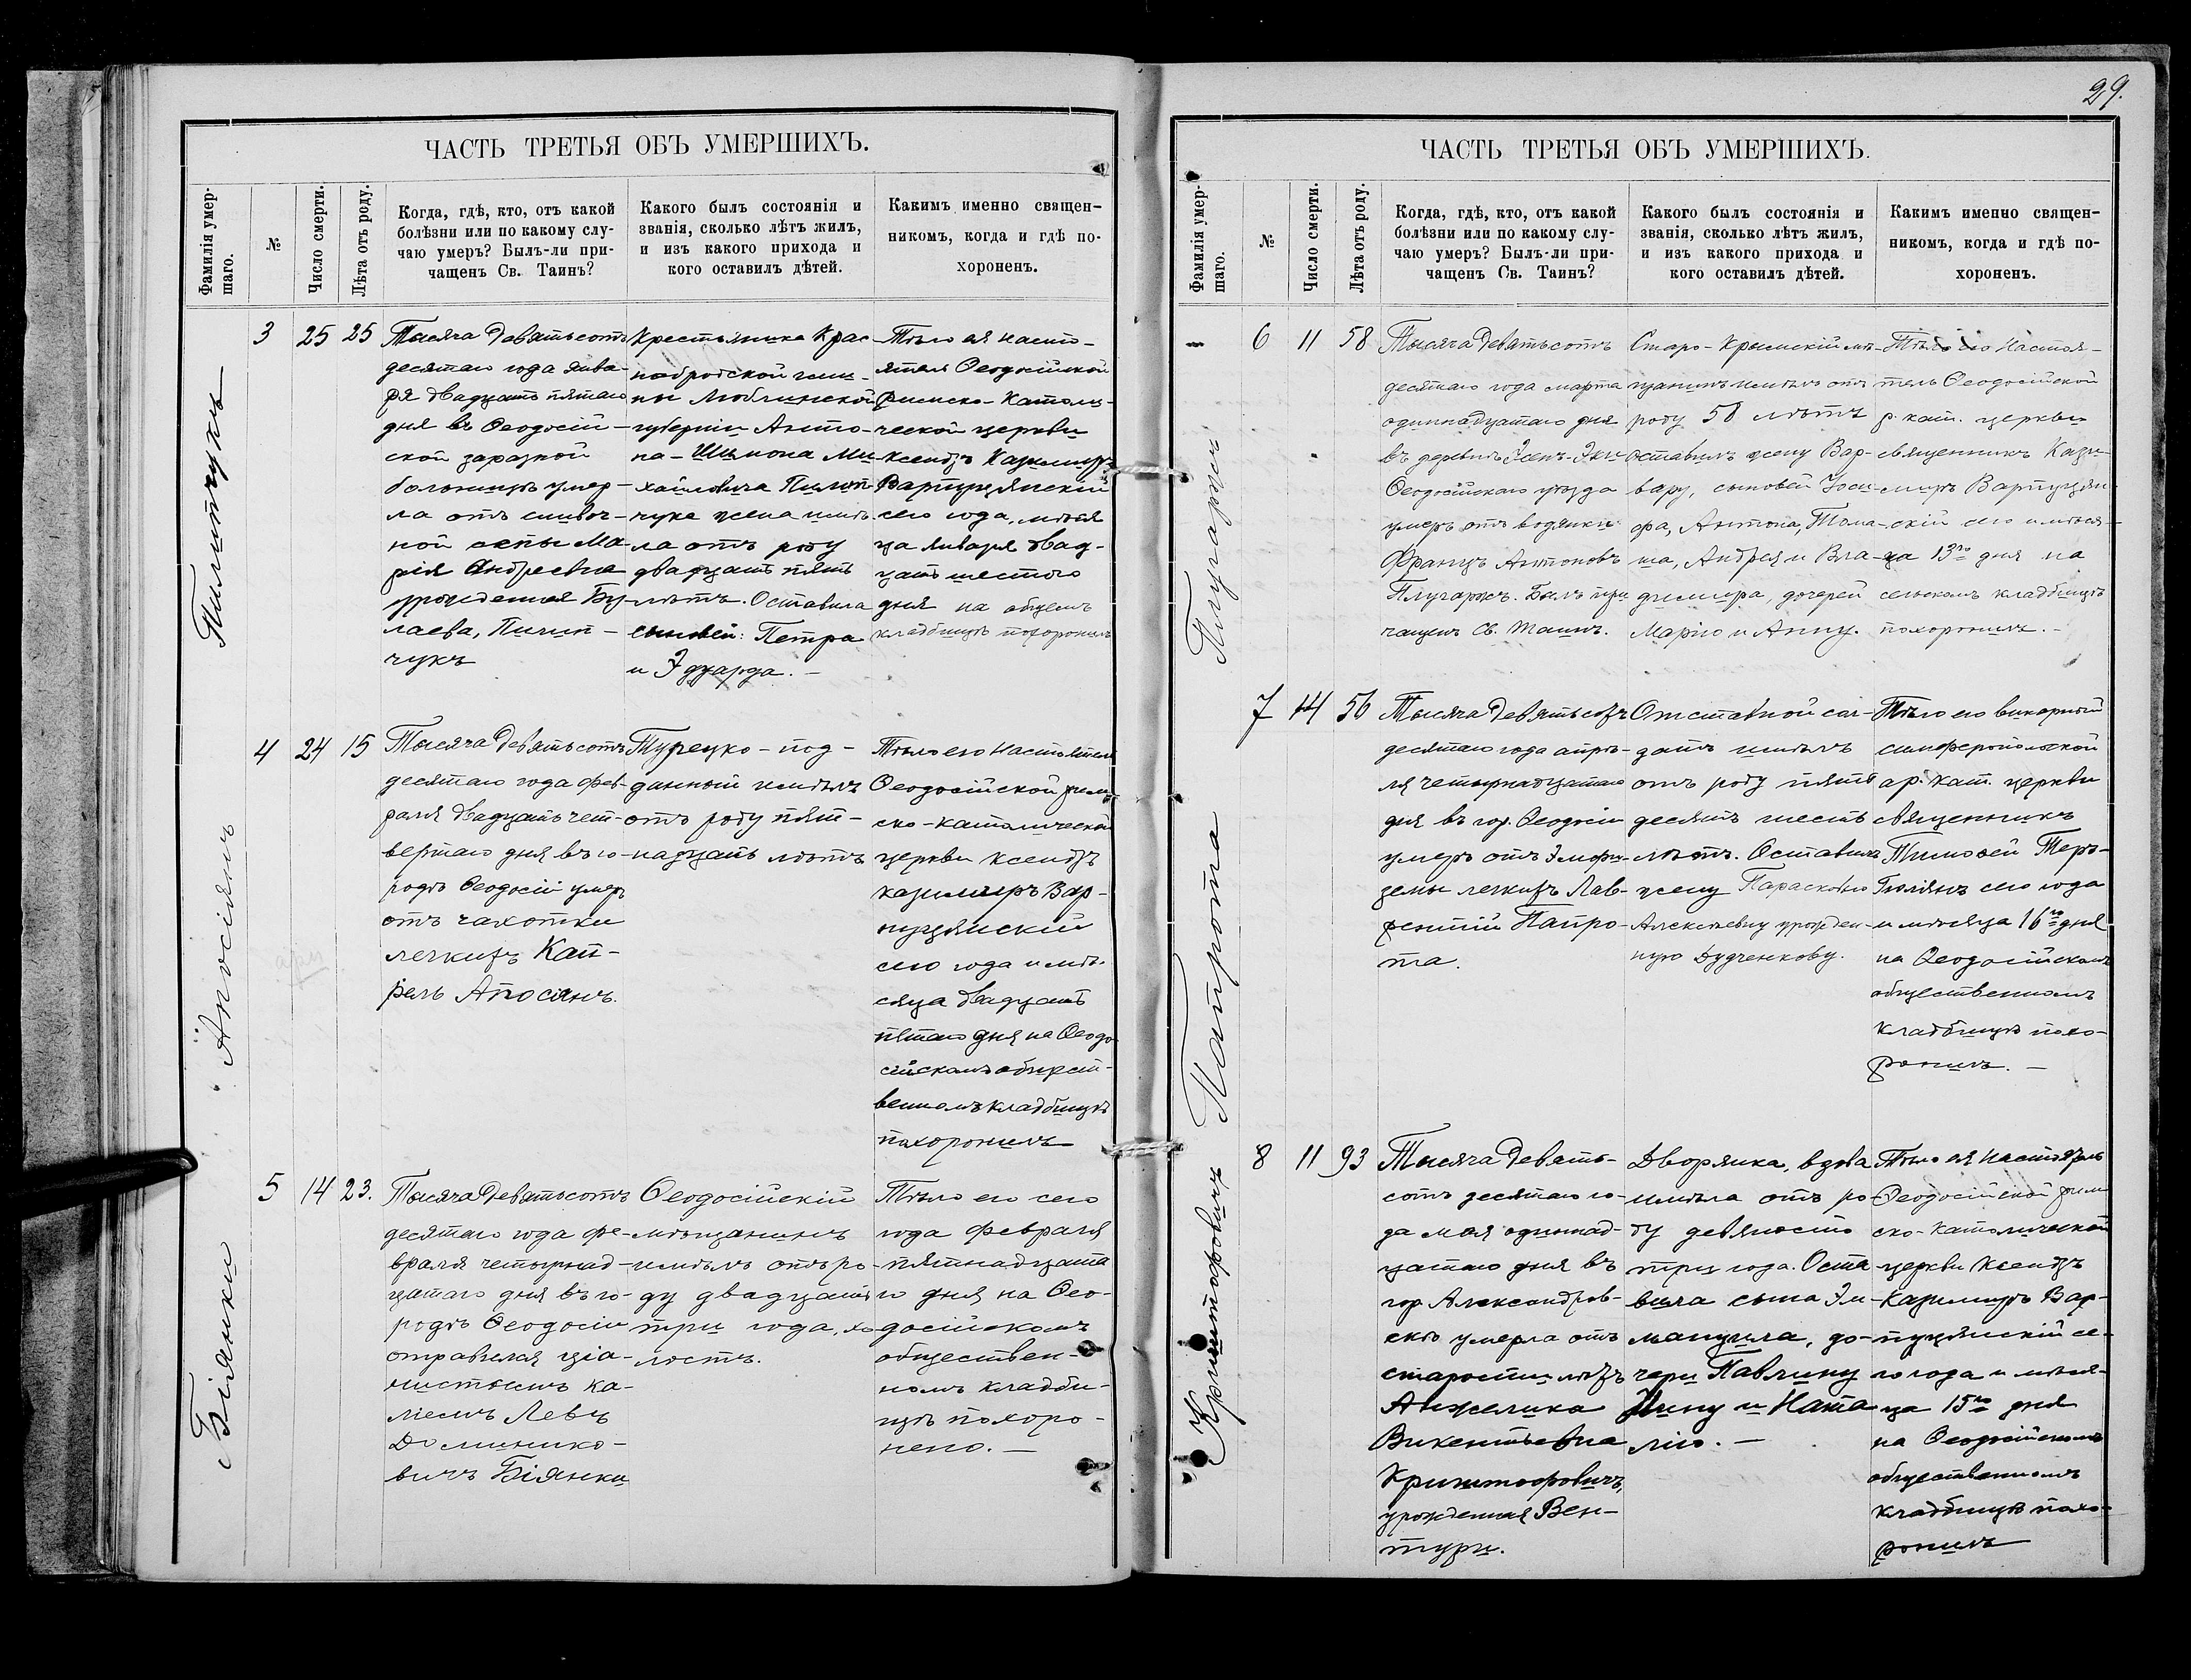 29.
ЧАСТЬ ТРЕТЬЯ ОБЪ УМЕРШИХЪ.
Фамилія умер-
шаго.
№
Число смерти.
Лѣта отъ роду.
Когда, гдѣ, кто, отъ какой
болѣзни или по какому слу-
чаю умеръ? Былъ-ли при-
чащенъ Св. Таинъ?
Какого былъ состоянія и
званія, сколько лѣтъ жилъ,
и изъ какого прихода и
кого оставилъ дѣтей.
Какимъ именно священ-
никомъ, когда и гдѣ по-
хороненъ.
Пилипчукъ
3
25
25
Тысяча девятьсотъ
десятаго года янва-
ря двадцать пятаго
дня въ Ѳеодосій-
ской заразной
больницѣ умер-
ла отъ
ной оспы Ма-
рія Андреевна
урожденная Бу-
лаева, Пилип-
чукъ
Крестьянина Крас-
нобродской гми-
ны Люблинской
губерніи Анто-
на-Шимона Ми-
хайловича Пилип-
чука жена имѣ-
ла отъ роду
двадцать пять
лѣтъ. Оставила
сыновей: Петра
и Эдуарда.—
Тѣло ея насто-
ятель Ѳеодосійской
Римско-Католи-
ческой церкви
Ксендзъ Казимиръ
Варпуцянскій
сего года, мѣся-
ца января двад-
цать шестого
дня на общемъ
кладбищѣ похоронилъ
Апосіянъ
4
24
15
Тысяча девятьсотъ
десятаго года фев-
раля двадцать чет-
вертаго дня въ го-
родѣ Ѳеодосіи умеръ
отъ чахотки
легкихъ Кап-
рель Апосіянъ.
Турецко-под-
данный имѣлъ
отъ роду пят-
надцать лѣтъ
Тѣло его Настоятель
Ѳеодосійской рим-
ско-католической
церкви Ксендзъ
Казимиръ Вар-
пуцянскій
сего года и мѣ-
сяца двадцать
пятаго дня на Ѳеодо-
сійскомъ общест-
венномъ кладбищѣ
похоронилъ
Біянки
5
14
23.
Тысяча девятьсотъ
десятаго года фе-
враля четырнад-
цатаго дня въ го-
родѣ Ѳеодосіи
отравился ціа-
нистымъ ка-
ліемъ Левъ
Доминико-
вичъ Біянки
Ѳеодосійскій
мѣщанинъ
имѣлъ отъ ро-
ду двадцать
три года, хо-
лостъ.
Тѣло его сего
года февраля
пятнадцата-
го дня на Ѳео-
досійскомъ
обществен-
номъ кладби-
щѣ похоро-
нено.—
ЧАСТЬ ТРЕТЬЯ ОБЪ УМЕРШИХЪ.
Фамилія умер-
шаго.
№
Число смерти.
Лѣта отъ роду.
Когда, гдѣ, кто, отъ какой
болѣзни или по какому слу-
чаю умеръ? Былъ-ли при-
чащенъ Св. Таинъ?
Какого былъ состоянія и
званія, сколько лѣтъ жилъ,
и изъ какого прихода и
кого оставилъ дѣтей.
Какимъ именно священ-
никомъ, когда и гдѣ по-
хороненъ.
Плугаржъ
6
11
58
Тысяча девятьсотъ
десятаго года марта
одиннадцатаго дня
въ деревнѣ
Ѳеодосійскаго уѣзда
умеръ отъ водянки
Францъ Антоновъ
Плугаржъ. Былъ при-
чащенъ Св. Таинъ.
Старо-Крымскій мѣ-
щанинъ имѣлъ отъ
роду 58 лѣтъ
оставилъ жену Вар-
вару, сыновей Іоси-
фа, Антона, Тома-
ша, Андрея и Вла-
димира, дочерей
Марію и Анну.
Тѣло его Настоя-
тель Ѳеодосійской
р. кат. церкви
священникъ Кази-
миръ Варпуцян-
скій сего и мѣся-
ца 13го дня на
сельскомъ кладбищѣ
похоронилъ.—
Папрота
7
14
56
Тысяча девятьсотъ
десятаго года апрѣ-
ля четырнадцатаго
дня въ гор. Ѳеодосіи
умеръ отъ Эмфи-
земы легкихъ Лав-
рентій Папро-
та.
Отставной сол-
датъ имѣлъ
отъ роду пять-
десятъ шесть
лѣтъ. Оставилъ
жену Парасковію
Алексѣевну урожден-
ную Дудченкову.
Тѣло его викарный
симферопольской
ар. кат. церкви
священникъ
Тимоѳей Теръ-
Гюліянъ сего года
и мѣсяца 16го дня
на Ѳеодосійскомъ
общественномъ
кладбищѣ похо-
ронилъ.—
Криштофовичъ
8
11
93
Тысяча девять-
сотъ десятаго го-
да мая одиннад-
цатаго дня въ
гор. Александров-
скѣ умерла отъ
старости лѣтъ
Анжелика
Викентьевна
Криштофовичъ,
урожденная Вен-
тури.
Дворянка, вдова
имѣла отъ ро-
ду девяносто
три года. Оста-
вила сына Эм-
мануила, до-
чери Павлину
Нину и Ната-
лію.—
Тѣло ея настоятель
Ѳеодосійской рим-
ско-католической
церкви Ксендзъ
Казимиръ Вар-
пуцянскій се-
го года и мѣся-
ца 15го дня
на Ѳеодосійскомъ
общественномъ
кладбищѣ похо-
ронилъ